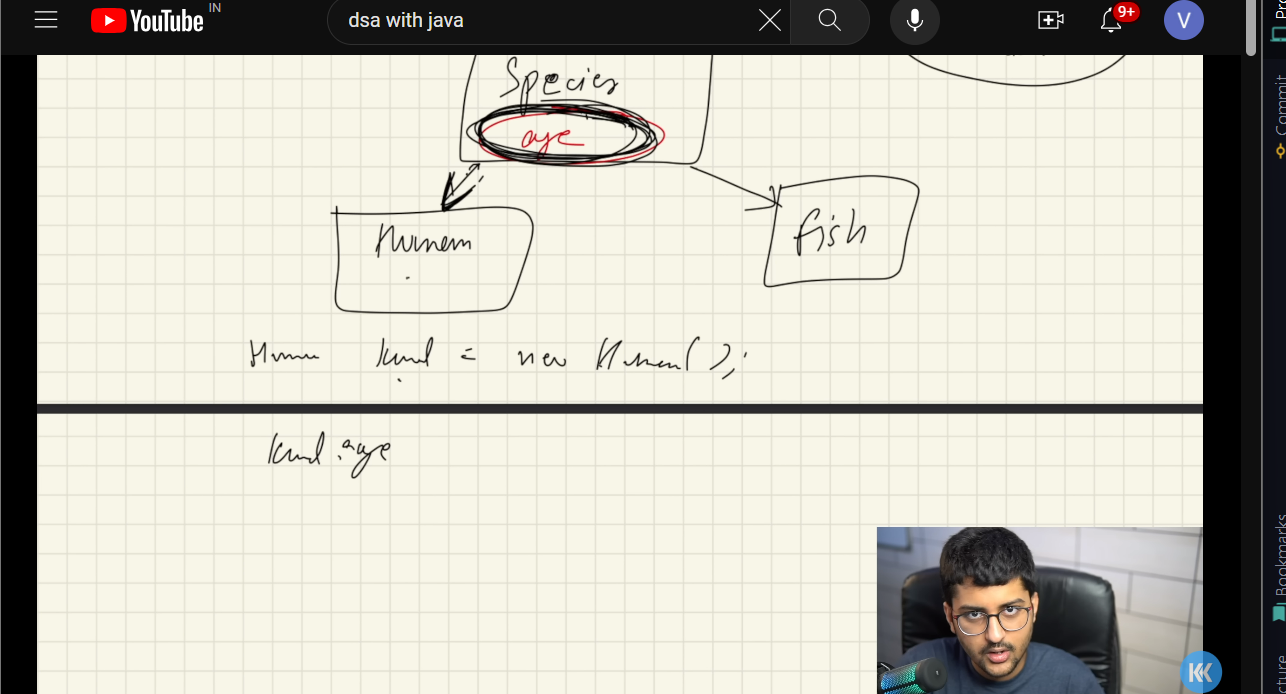 YouTube IN
dsa with java
9+
V
Species
age
Human
fish
Human kunal = new Human();
kunal.age
Commit
Bookmarks